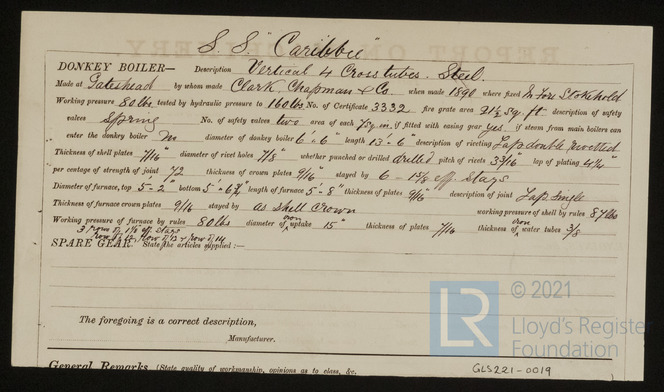 S. S. "Caribbee"
DONKEY BOILER— Description Vertical 4 Cross tubes. Steel.
Made at Gateshead by whom made Clark, Chapman & Co. when made 1890 where fixed In Fore Stokehold
Working pressure 80 lbs tested by hydraulic pressure to 160 lbs No. of Certificate 3332 fire grate area 21½ Sq. ft description of safety
valves Spring No. of safety valves two area of each 7 Sq. in. if fitted with easing gear yes. if steam from main boilers can
enter the donkey boiler no diameter of donkey boiler 6'-6" length 13'-6" description of riveting Lap double rivetted
Thickness of shell plates 7/16 diameter of rivet holes 7/8" whether punched or drilled drilled pitch of rivets 3 3/16" lap of plating 4¼"
per centage of strength of joint 72 thickness of crown plates 9/16" stayed by 6 - 1 5/8 eff. Stays
Diameter of furnace, top 5'-2" bottom 5'-6¾" length of furnace 5'-8" thickness of plates 9/16" description of joint Lap Single
Thickness of furnace crown plates 9/16 stayed by as shell Crown working pressure of shell by rules 87 lbs
Working pressure of furnace by rules 80 lbs diameter of iron uptake 15" thickness of plates 7/16 thickness of iron water tubes 3/8
SPARE GEAR. State the articles supplied:—
The foregoing is a correct description,
Manufacturer.
General Remarks (State quality of workmanship, opinions as to class, &c.
LR © 2021
Lloyd's Register
Foundation
GLS221-0019